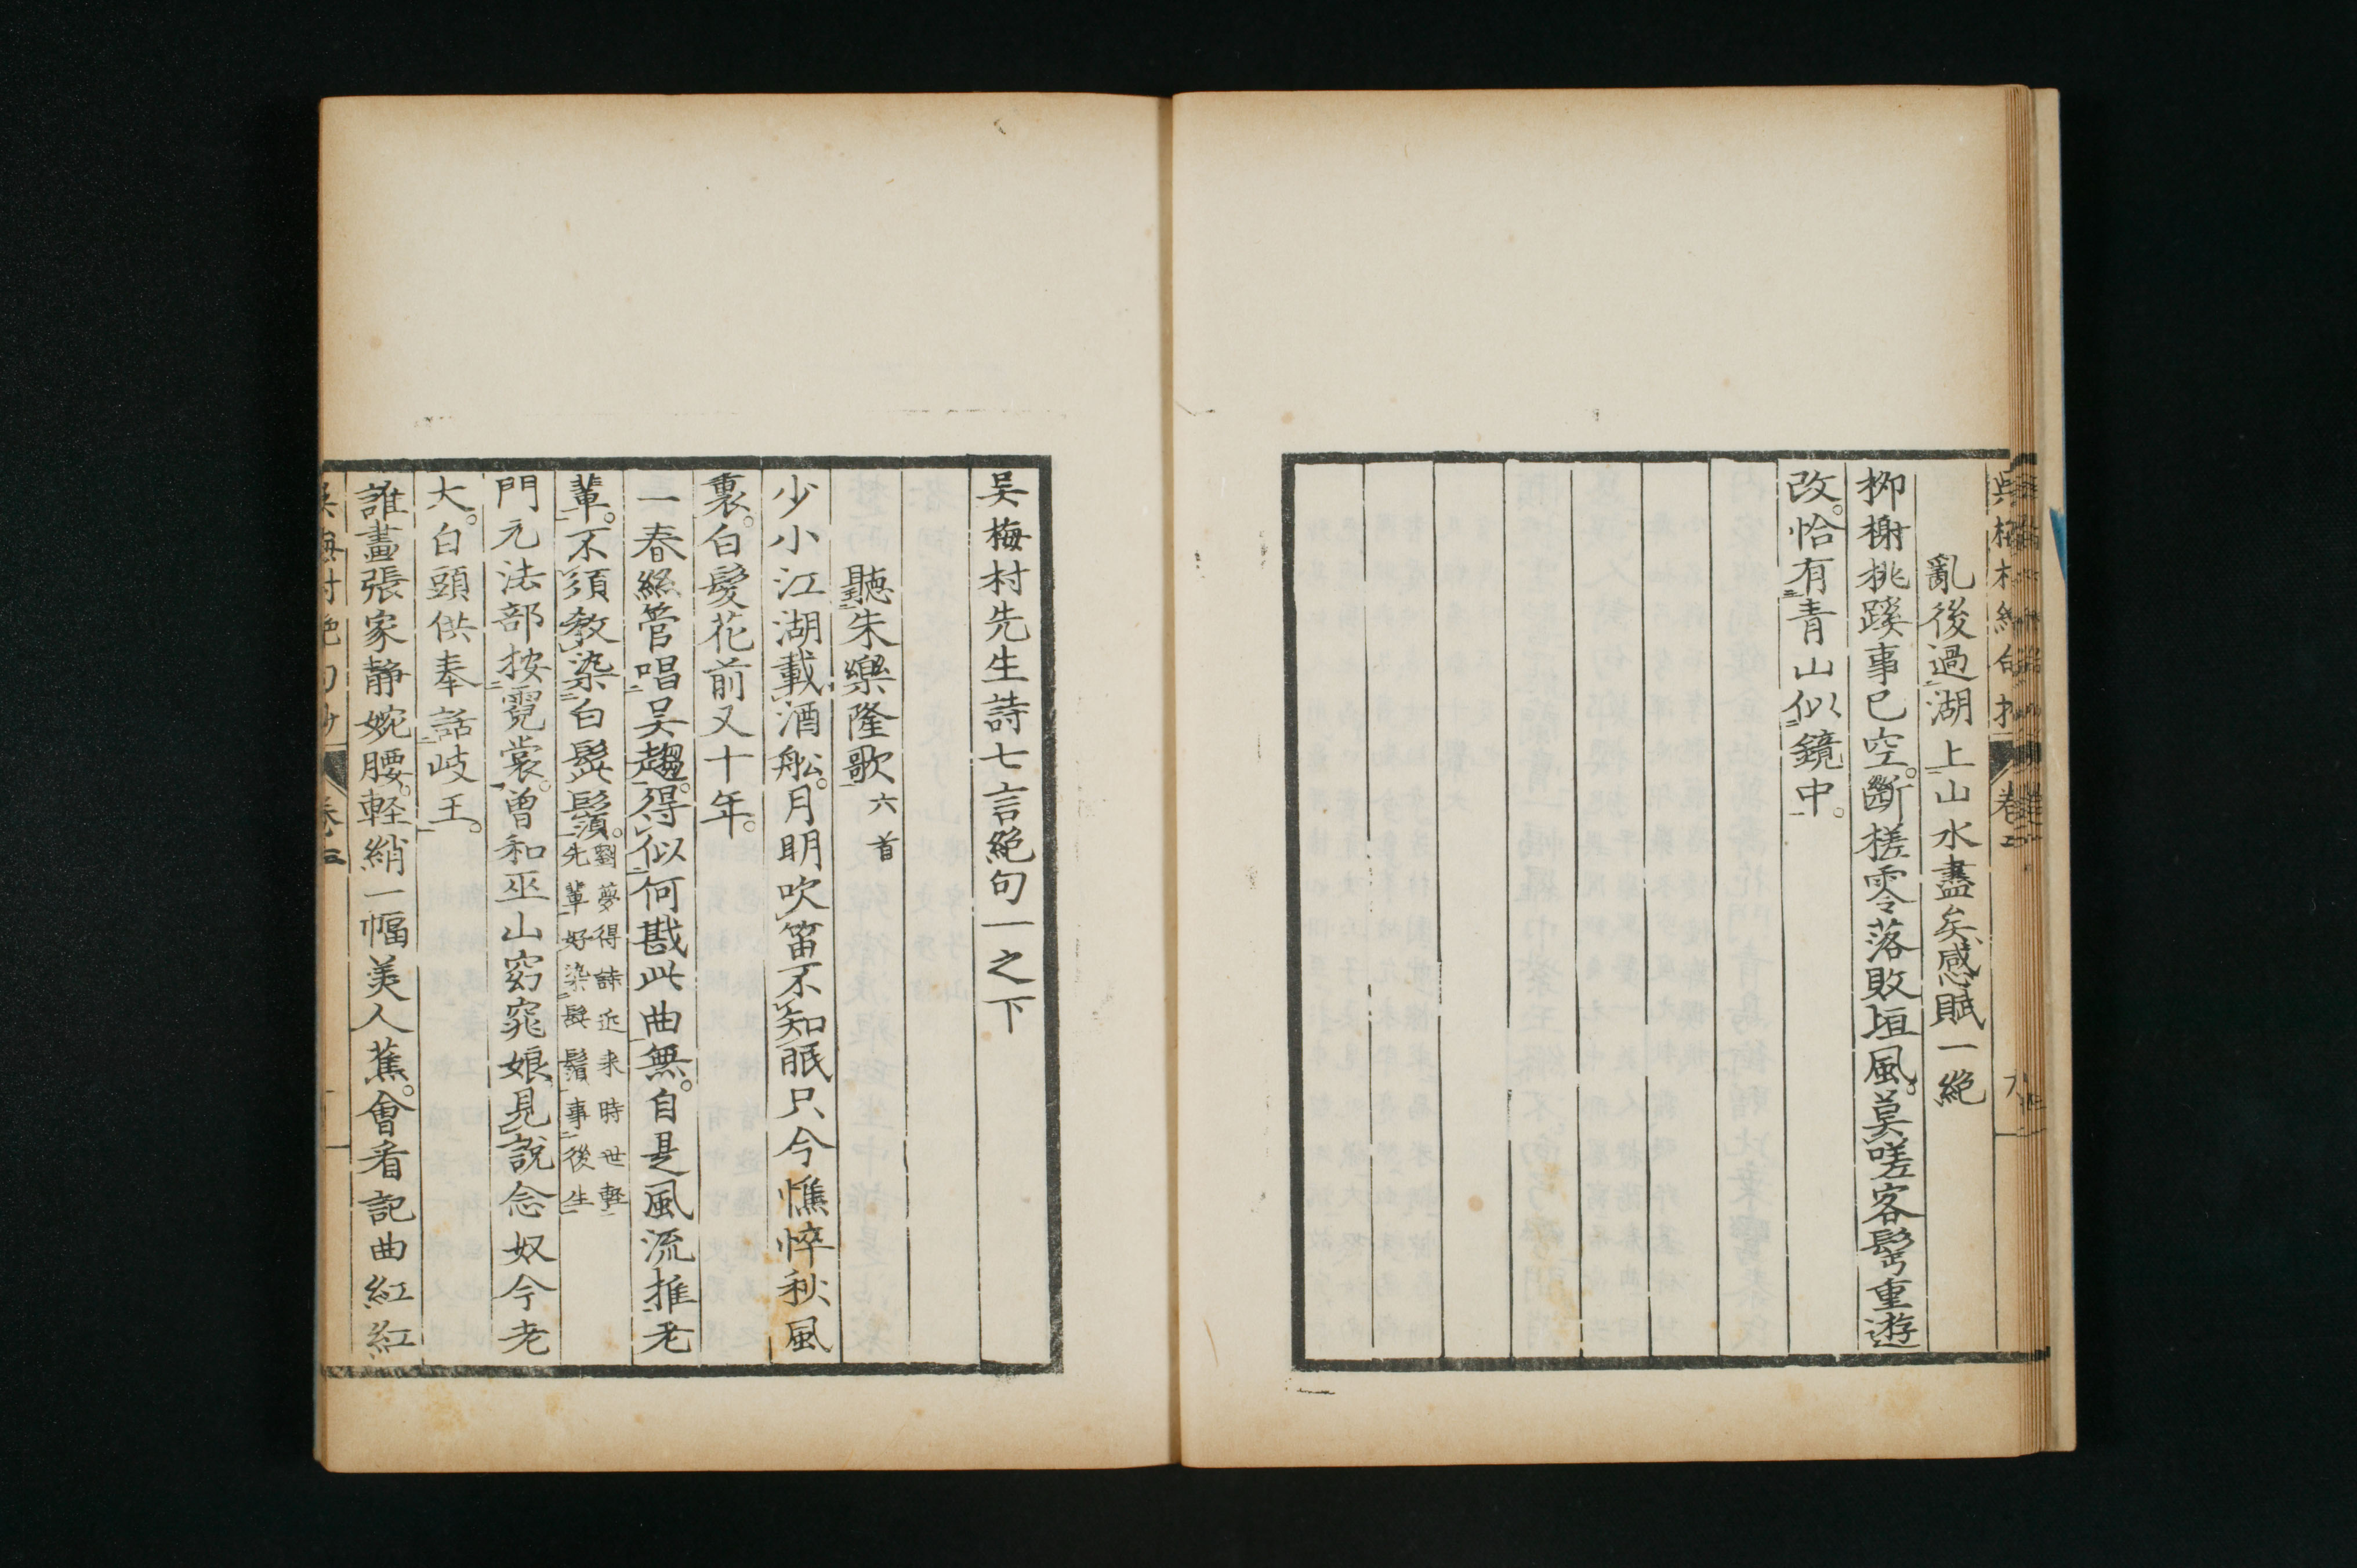 亂後過湖上山水盡矣感賦一絶
柳榭桃蹊事已空。斷槎零落敗垣風。莫嗟客鬂重遊
改。恰有青山似鏡中。
吴梅村先生詩七言絶句一之下
聽朱樂隆歌六首
少小江湖載酒舩。月明吹笛不知眠只今憔悴秋風
裏。白髮花前又十年。
一春絲管唱吴趨。得似何戡此曲無。自是風流推老
輩。不須教染白髭鬚。劉夢得詩近来時世軽
先輩好染髭鬚事後生
門元法部按霓裳。曽和巫山窈窕娘見說念奴今老
大。白頭供奉話岐王。
誰畫張家静婉腰。軽綃一幅美人蕉。會看記曲紅紅